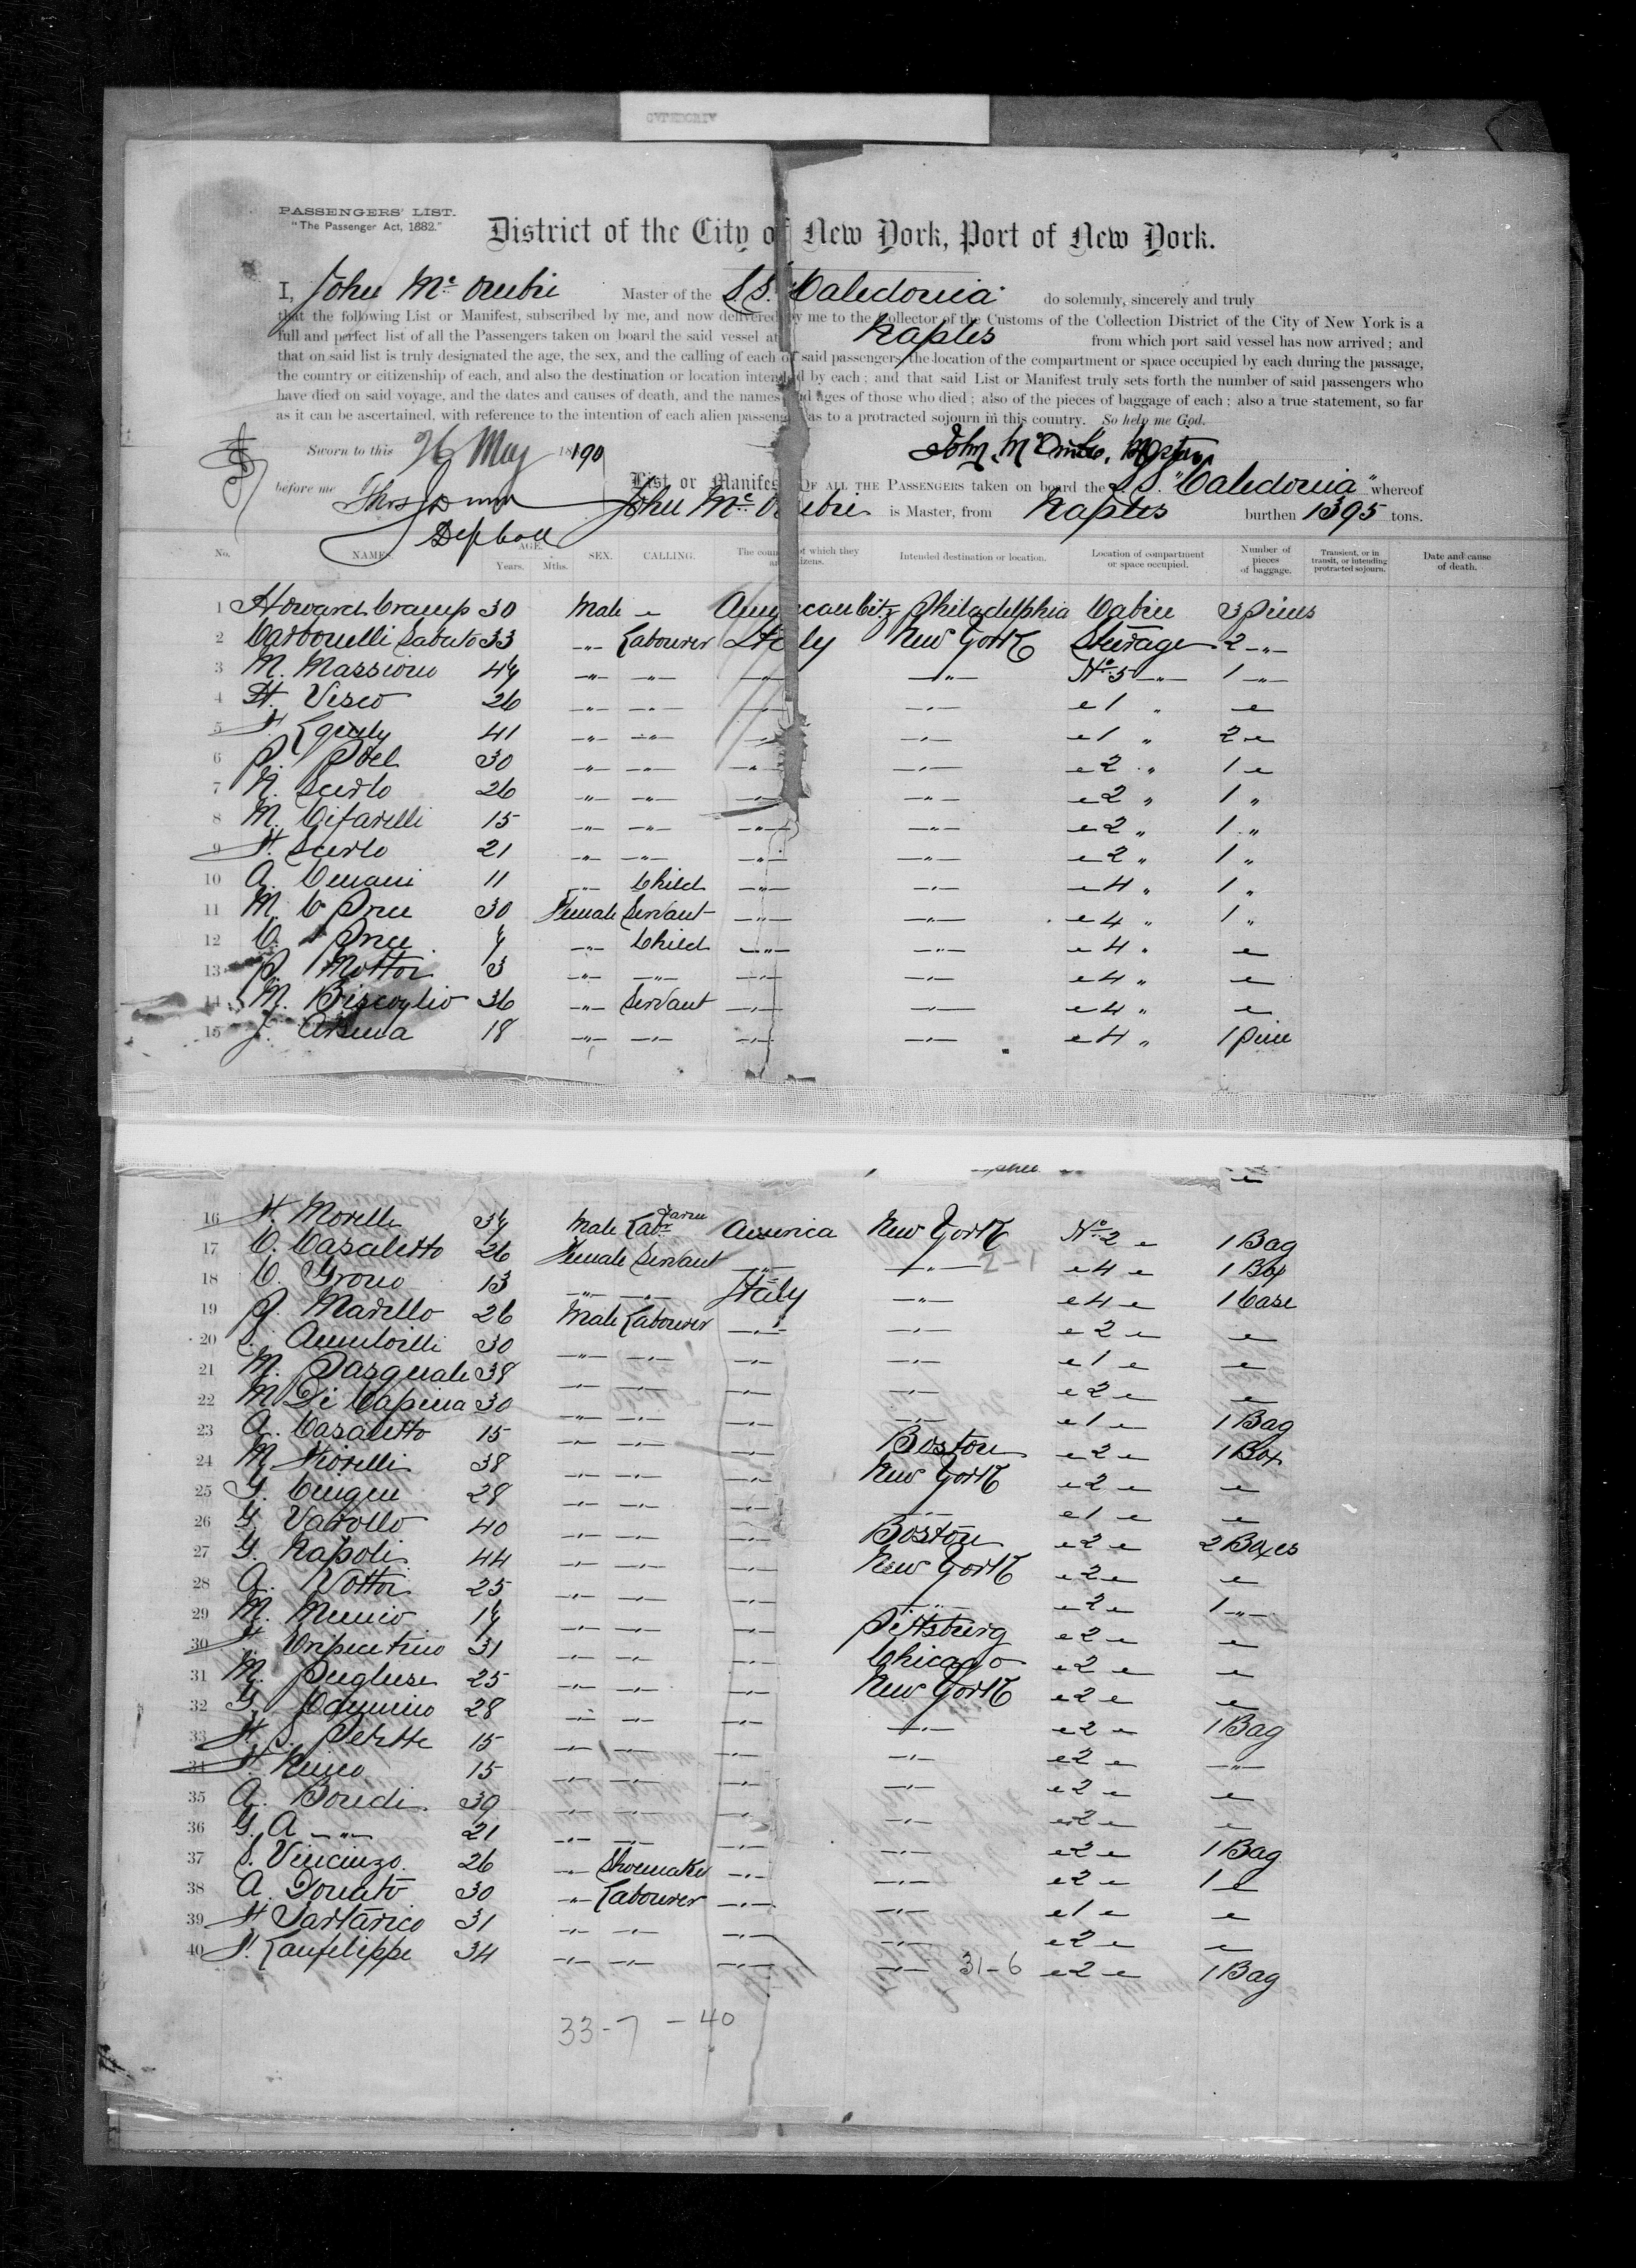 PASSENGERS' LIST.
"The Passenger Act, 1882."
District of the City of New York, Port of New York.
I, John Mc Master of the S.S. Caledonia do solemnly, sincerely and truly
that the following List or Manifest, subscribed by me, and now delivered by me to the Collector of the Customs of the Collection District of the City of New York is a
full and perfect list of all the Passengers taken on board the said vessel at Naples from which port said vessel has now arrived; and
that on said list is truly designated the age, the sex, and the calling of each of said passengers, the location of the compartment or space occupied by each during the passage,
the country or citizenship of each, and also the destination or location intended by each; and that said List or Manifest truly sets forth the number of said passengers who
have died on said voyage, and the dates and causes of death, and the names and ages of those who died; also of the pieces of baggage of each; also a true statement, so far
as it can be ascertained, with reference to the intention of each alien passenger as to a protracted sojourn in this country. So help me God.
Sworn to this 26 May 1890 John Mc
before me Thos Dunn List or Manifest OF ALL THE PASSENGERS taken on board the S.S. "Caledonia" whereof
John Mc is Master, from Naples burthen 1395 tons.
No. NAMES. AGE. Years. Mths. SEX. CALLING. The country of which they are citizens. Intended destination or location. Location of compartment or space occupied. Number of pieces of baggage. Transient, or in transit, or intending protracted sojourn. Date and cause of death.
1 Howard Cramp 30 Male American Citz Philadelphia Cabin 3 pieces
2 Carbonelli Sabato 33 -"- Labourer Italy New York Steerage 2 -"-
3 M. Massiono 44 -"- -"- -"- -"- No 5 -"- 1 -"-
4 F. Visco 26 -"- -"- -"- -"- 1 "
5 F. 41 -"- -"- -"- -"- 1 " 2
6 P. 30 -"- -"- -"- -"- 2 " 1
7 N. Scerlo 26 -"- -"- -"- -"- 2 " 1 "
8 M. Cifarelli 15 -"- -"- -"- -"- 2 " 1 "
9 F. Scerlo 21 -"- -"- -"- -"- 2 " 1 "
10 A. 11 -"- Child -"- -"- 4 " 1 "
11 M. C. 30 Female Servant -"- -"- 4 " 1 "
12 C. -"- Child -"- -"- 4 "
13 P. Mottoi 3 -"- -"- -"- -"- 4 "
14 M. Biscoglio 36 -"- Servant -"- -"- 4 "
15 J. 18 -"- -"- -"- -"- 4 " 1 piece
16 F. Morelli 34 Male Farm Labr America New York No 2 1 Bag
17 C. Casaletto 26 Female Servant -"- -"- 4 1 Box
18 C. Grono 13 -"- -"- Italy -"- 4 1 Case
19 P. Marello 26 Male Labourer -"- -"- 2
20 S. 30 -"- -"- -"- -"- 1
21 M. Pasquale 38 -"- -"- -"- -"- 2
22 M. Di Capina 30 -"- -"- -"- -"- 1 1 Bag
23 A. Casaletto 15 -"- -"- -"- Boston 2 1 Box
24 M. Fiorelli 38 -"- -"- -"- New York 2
25 G. 28 -"- -"- -"- -"- 1
26 G. Varollo 40 -"- -"- -"- Boston 2 2 Boxes
27 G. Napoli 44 -"- -"- -"- New York 2
28 A. Nottoi 25 -"- -"- -"- -"- 2 1 -"-
29 M. 14 -"- -"- -"- Pittsburg 2
30 F. 31 -"- -"- -"- Chicago 2
31 M. Pugliese 25 -"- -"- -"- New York 2
32 G. 28 -"- -"- -"- -"- 2 1 Bag
33 F. S. 15 -"- -"- -"- -"- 2 -"-
34 F. 15 -"- -"- -"- -"- 2
35 A. Boredi 39 -"- -"- -"- -"- 2
36 G. A -"- 21 -"- -"- -"- -"- 2 1 Bag
37 S. Vincenzo 26 -"- Shoemaker -"- -"- 2 1
38 A. Donato 30 -"- Labourer -"- -"- 1
39 F. Tartarico 31 -"- -"- -"- -"- 2
40 F. Lanfelippe 34 -"- -"- -"- -"- 31-6 2 1 Bag
33-7 -40